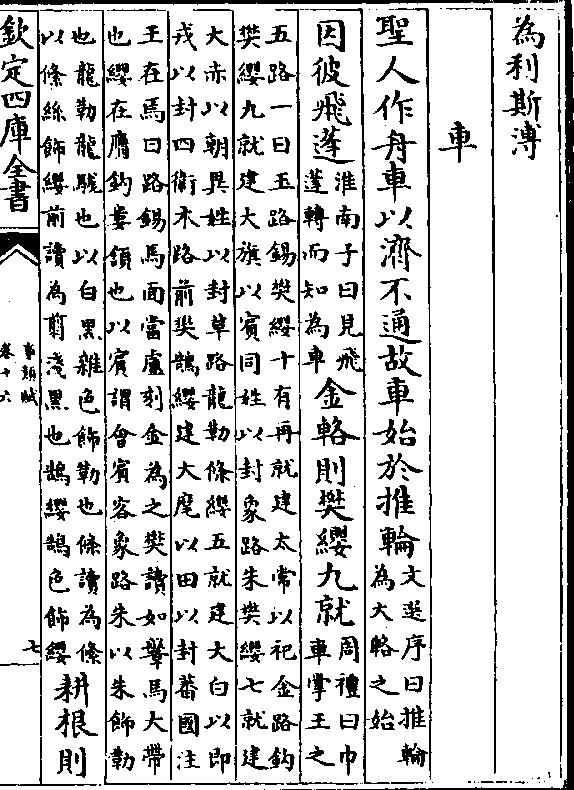 為利斯溥
車
聖人作舟車以濟不通故車始於推輪文選序曰推輪為大輅之始
因彼飛蓬淮南子曰見飛蓬轉而知為車金輅則樊纓九就周禮曰巾車掌王之
五路一曰玉路錫樊纓十有再就建太常以祀金路鈎
樊纓九就建大旗以賓同姓以封象路朱樊纓七就建
大赤以朝異姓以封草路龍勒條纓五就建大白以即
戎以封四衛木路前樊鵠纓建大麾以田以封蕃國注
王在焉曰路錫馬面當盧刻金為之樊讀如鞶馬大帶
也纓在膺鈎婁頷也以賓謂會賓客象路朱以朱飾勒
也龍勒龍駹也以白黑雜色飾勒也條讀為絛
以絛絲飾纓前讀為翦淺黑也鵠纓鵠色飾纓耕根則
欽定四庫全書
事類賦
卷十六
七